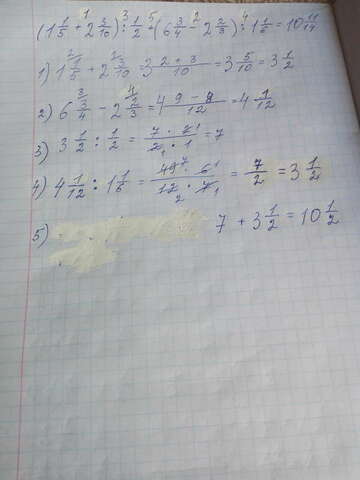 (1 1/5 + 2 3/10) : 1/2 + (6 3/4 - 2 2/3) : 1 1/6 = 10 11/14
1) 1 1/5 + 2 3/10 = 3 2+3/10 = 3 5/10 = 3 1/2
2) 6 3/4 - 2 2/3 = 4 9-8/12 = 4 1/12
3) 3 1/2 : 1/2 = 7·2/2·1 = 7
4) 4 1/12 : 1 1/6 = 49·6/12·7 = 7/2 = 3 1/2
5) 7 + 3 1/2 = 10 1/2